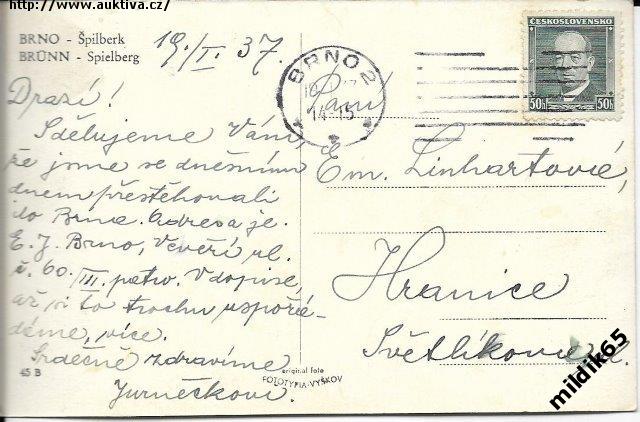 http://www.auktiva.cz/
BRNO - Špilberk
BRÜNN - Spielberg
19./I. 37.
Drazí!
Sdělujeme Vám,
že jsme se dnešním
dnem přestěhovali
do Brna. Adresa je.
E. J. Brno, Veveří ul.
č. 60. III. patro. V dopise,
až si to trochu uspořá-
dáme, více.
Srdečně zdravíme
Jurnečkovi.
45 B
original foto
FOTOTYPIA-VYŠKOV
BRNO 2
14-15
ČESKOSLOVENSKO
50h 50h
Paní
Em. Linhartová,
Hranice
Světlíkova ul.
mildik65